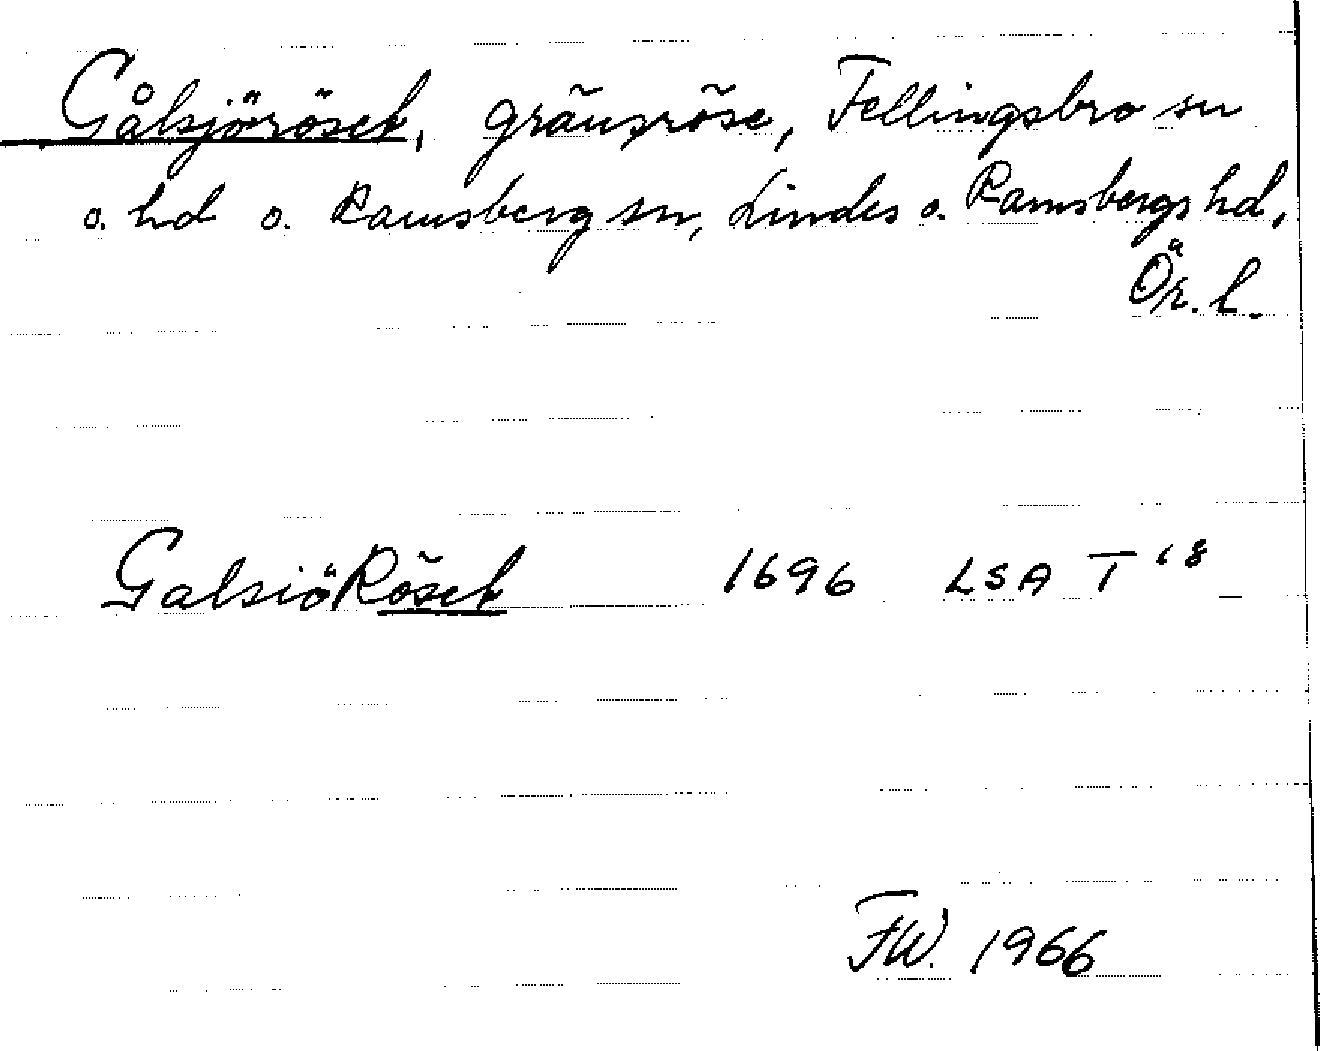 Gålsjöröset, gränsröse, Fellingsbro sn
o. hd o. Ramsberg sn, Lindes o. Ramsbergs hd,
Ör. l.
GalsiöRöset 1696 LSA T 18
FW. 1966